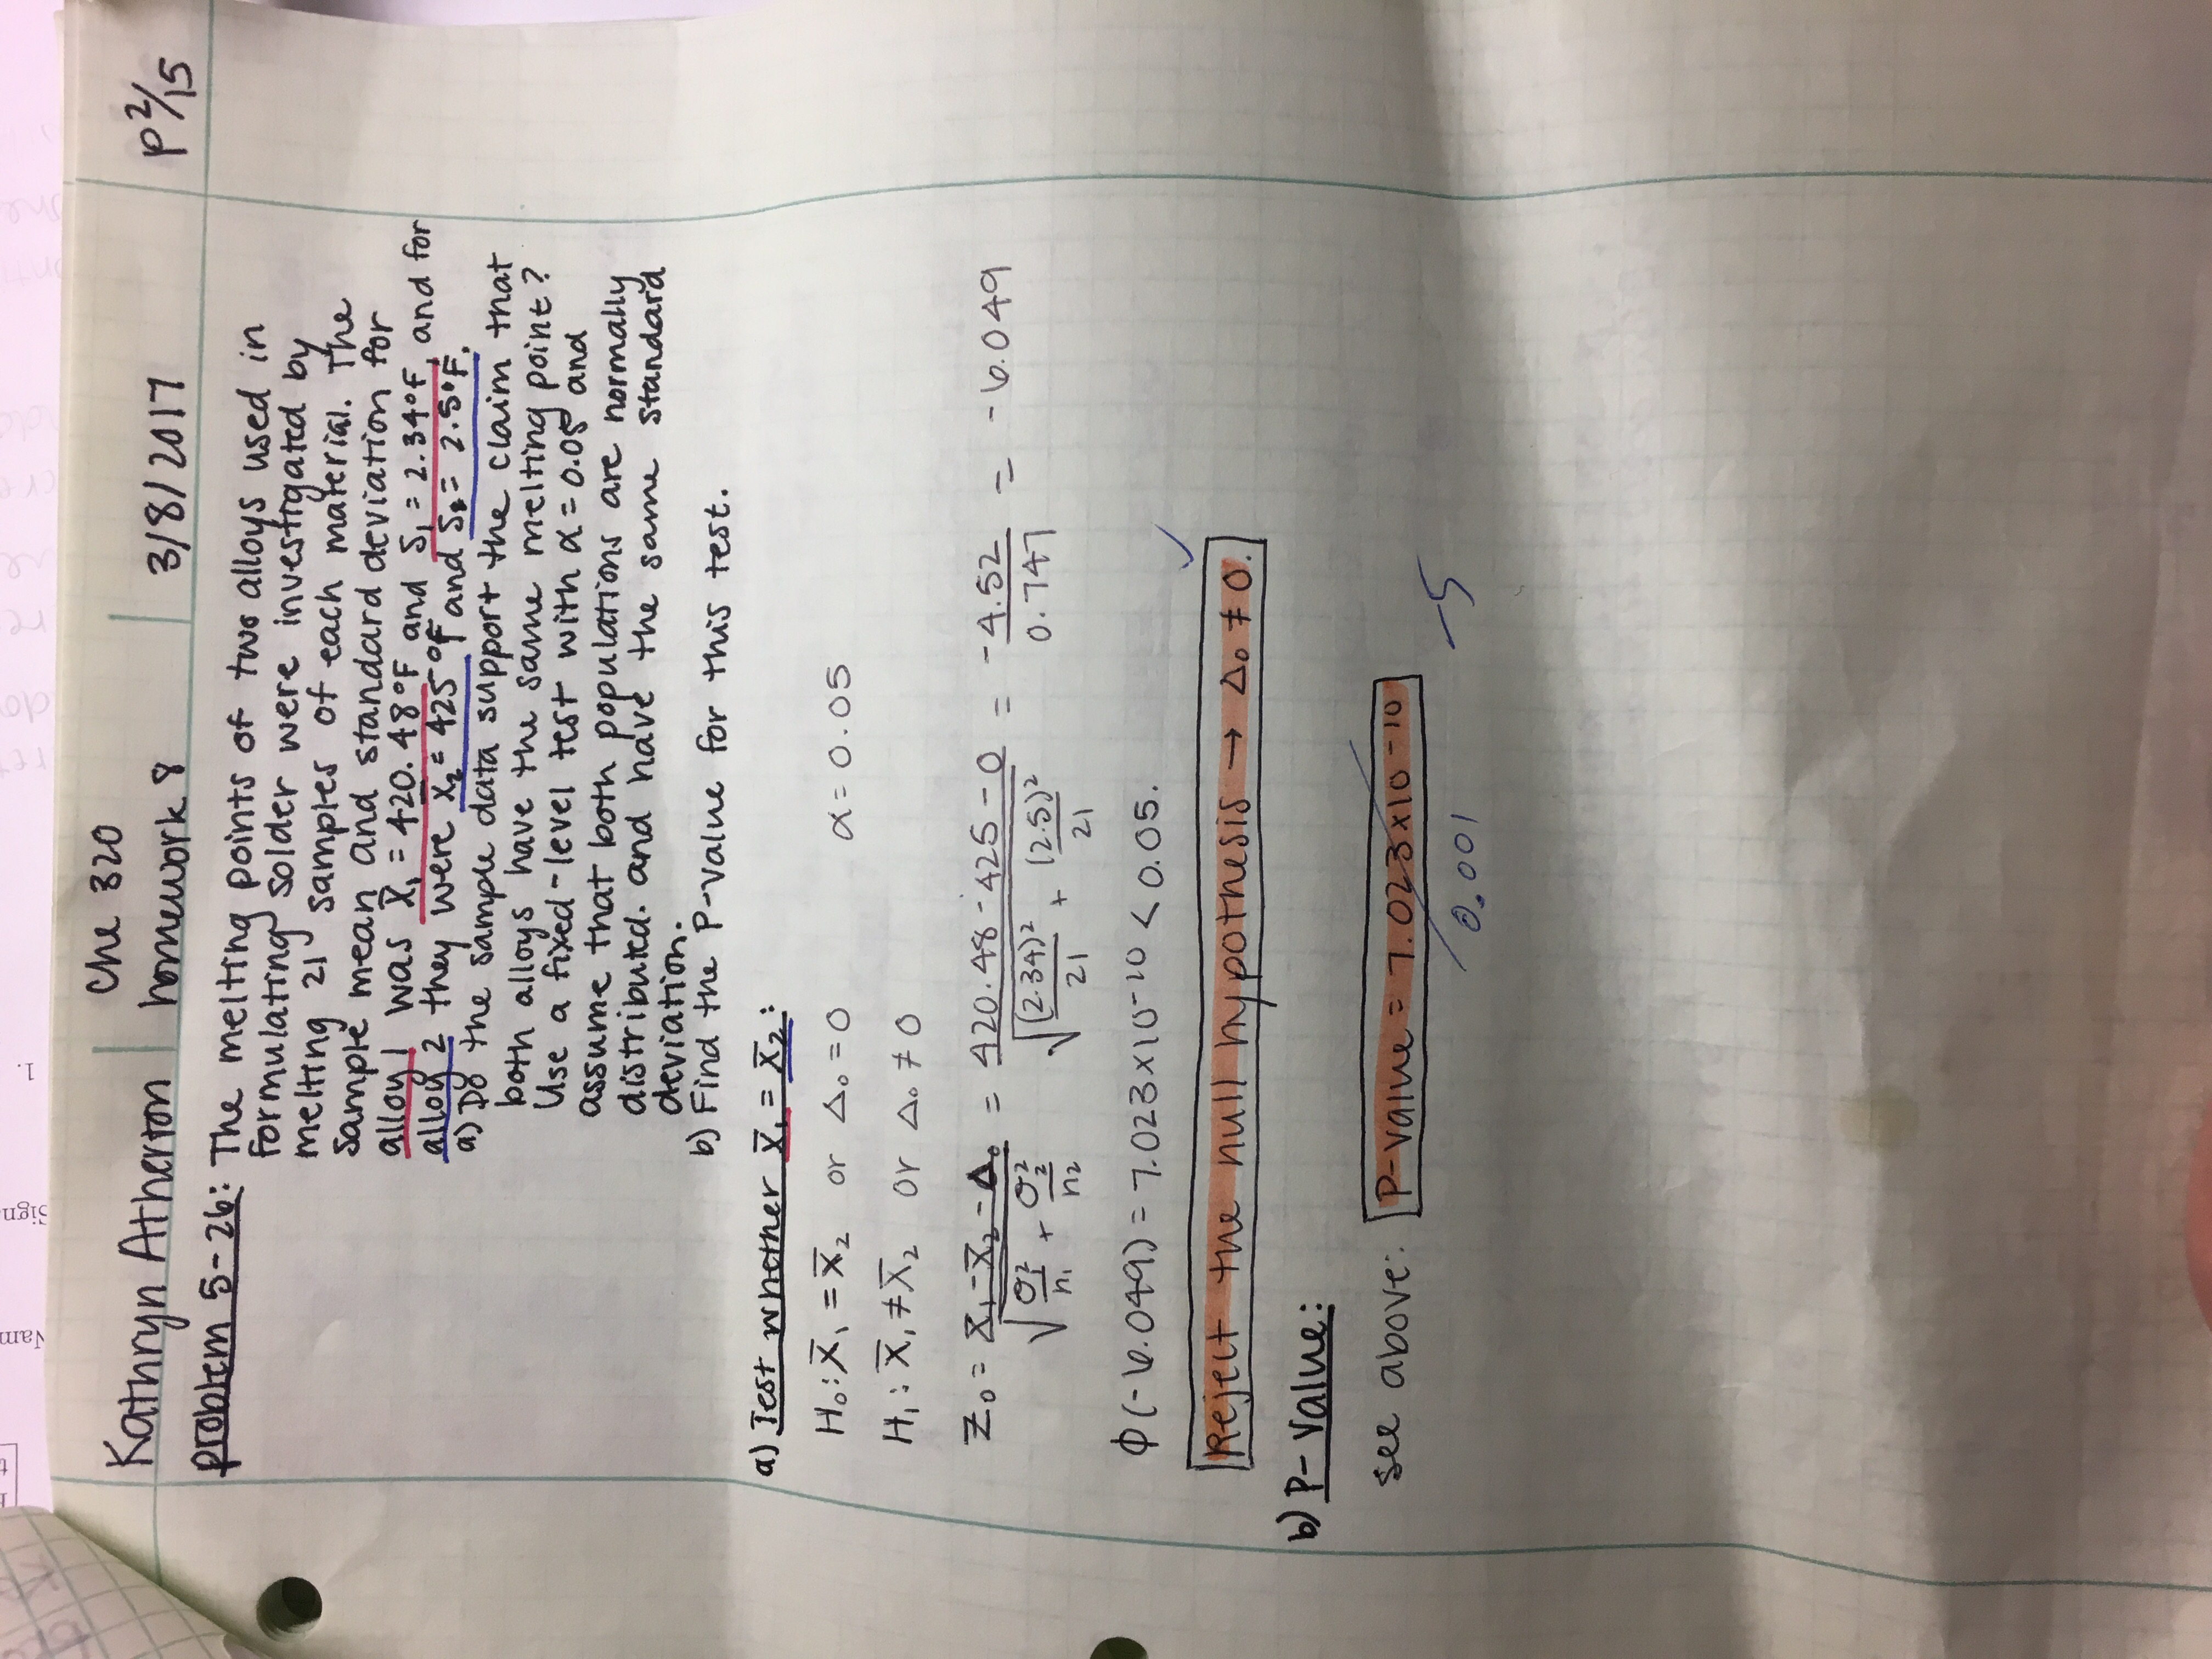 Nam
Sign
1.
Kathryn Atherton
Che 320
homework 8
3/8/2017
P 2/15
problem 5-26: The melting points of two alloys used in
formulating solder were investigated by
melting 21 samples of each material. The
sample mean and standard deviation for
alloy 1 was X̄₁ = 420.48°F and S₁ = 2.34°F, and for
alloy 2 they were x̄₂ = 425°F and S₂ = 2.5°F.
a) Do the sample data support the claim that
both alloys have the same melting point?
Use a fixed-level test with α = 0.05 and
assume that both populations are normally
distributed. and have the same standard
deviation.
b) Find the P-value for this test.
a) Test whether X̄₁ = X̄₂:
H₀: X̄₁ = X̄₂ or Δ₀ = 0 α = 0.05
H₁: X̄₁ ≠ X̄₂ or Δ₀ ≠ 0
Z₀ = (X̄₁ - X̄₂ - Δ₀) / √(σ₁²/n₁ + σ₂²/n₂) = (420.48 - 425 - 0) / √((2.34)²/21 + (2.5)²/21) = -4.52 / 0.747 = -6.049
Φ(-6.049) = 7.023x10⁻¹⁰ < 0.05.
✓
Reject the null hypothesis → Δ₀ ≠ 0.
b) P-Value:
see above: P-value = 7.023x10⁻¹⁰
0.001 -5